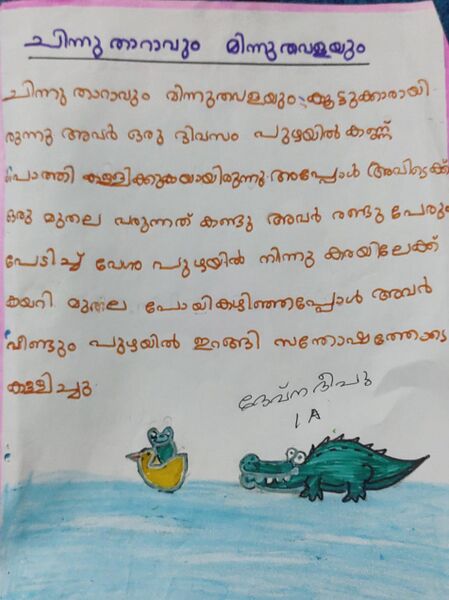 ചിന്നു താറാവും മിന്നുതവളയും
ചിന്നു താറാവും മിന്നുതവളയും കൂട്ടുകാരായി
രുന്നു അവർ ഒരു ദിവസം പുഴയിൽ കണ്ണ്
പൊത്തി കള്ളിക്കുകയായിരുന്നു. അപ്പോൾ അവിടെക്ക്
ഒരു മുതല വരുന്നത് കണ്ടു അവർ രണ്ടു പേരും
പേടിച്ച് വേഗം പുഴയിൽ നിന്നു കരയിലേക്ക്
കയറി മുതല പോയികഴിഞ്ഞപ്പോൾ അവർ
വീണ്ടും പുഴയിൽ ഇറങ്ങി സന്തോഷത്തോടെ
കള്ളിച്ചു
ദേവ്ന ദീപു
1 A